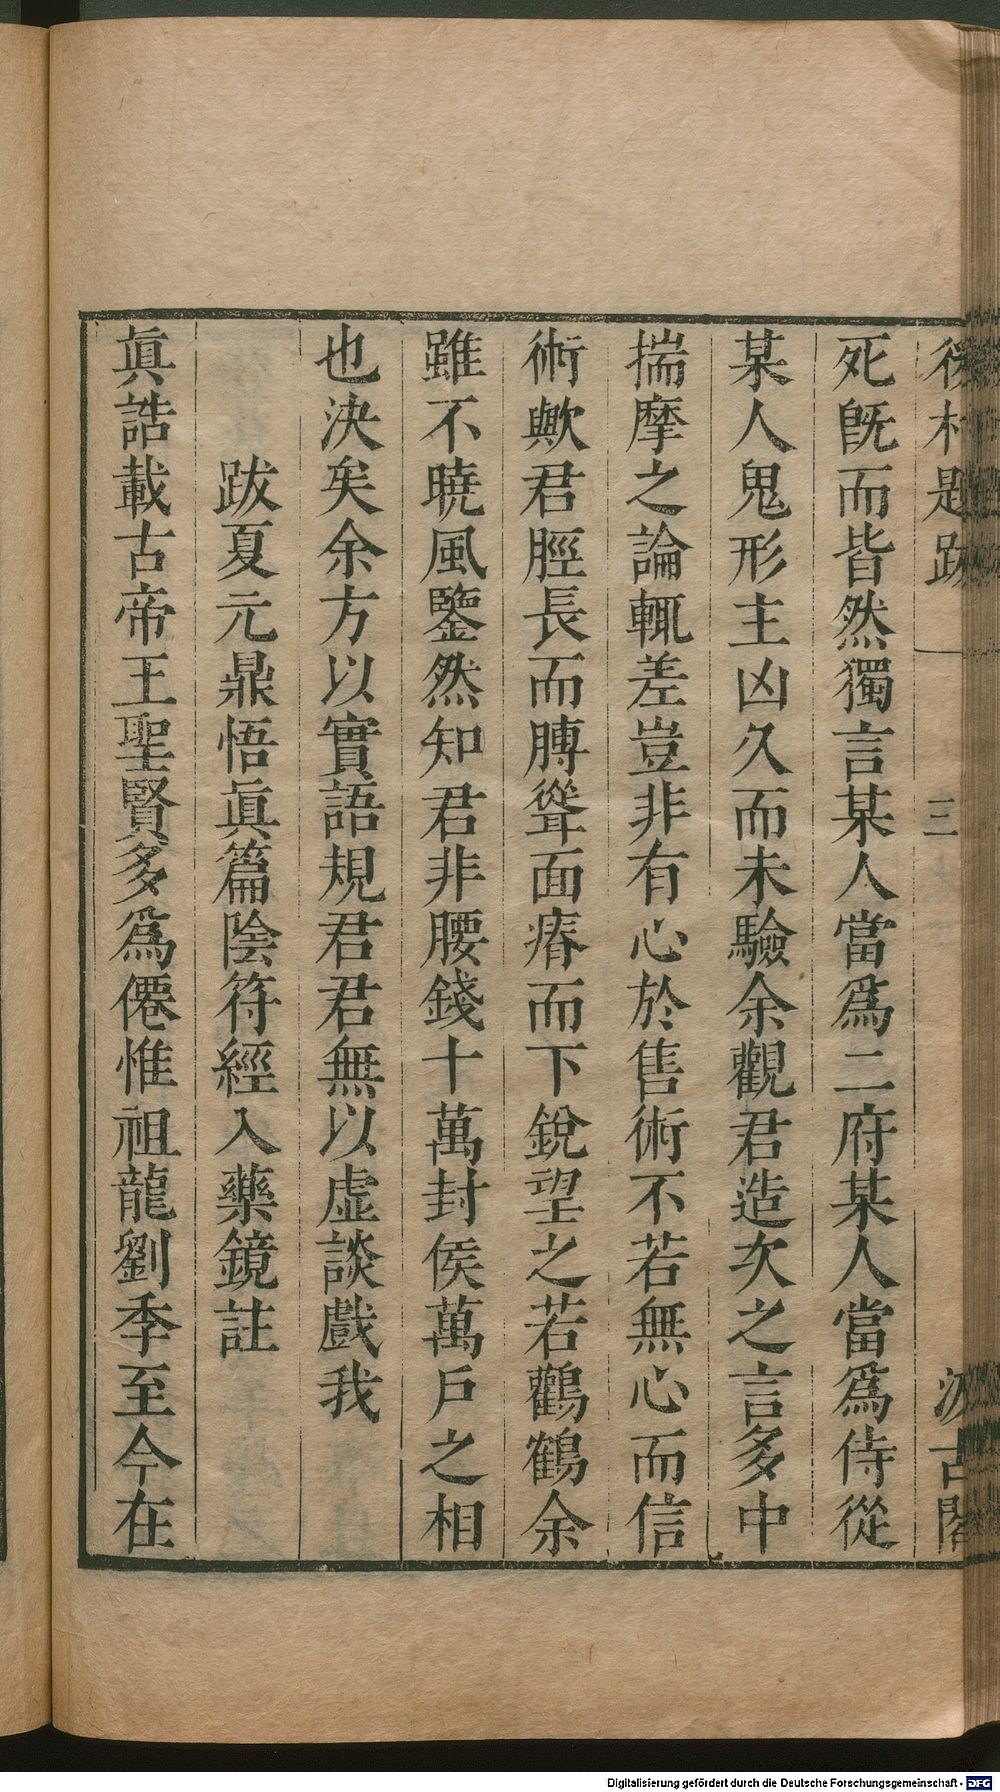 後村題跋 三 汲古閣
死旣而皆然獨言某人當爲二府某人當爲侍從
某人鬼形主凶久而未驗余觀君造次之言多中
揣摩之論輒差豈非有心於售術不若無心而信
術歟君脛長而膊聳面瘠而下銳望之若鸛鶴余
雖不曉風鑒然知君非腰錢十萬封侯萬戶之相
也決矣余方以實語規君君無以虛談戲我
跋夏元鼎悟眞篇陰符經入藥鏡註
眞誥載古帝王聖賢多爲僊惟祖龍劉季至今在
Digitalisierung gefördert durch die Deutsche Forschungsgemeinschaft - DFG